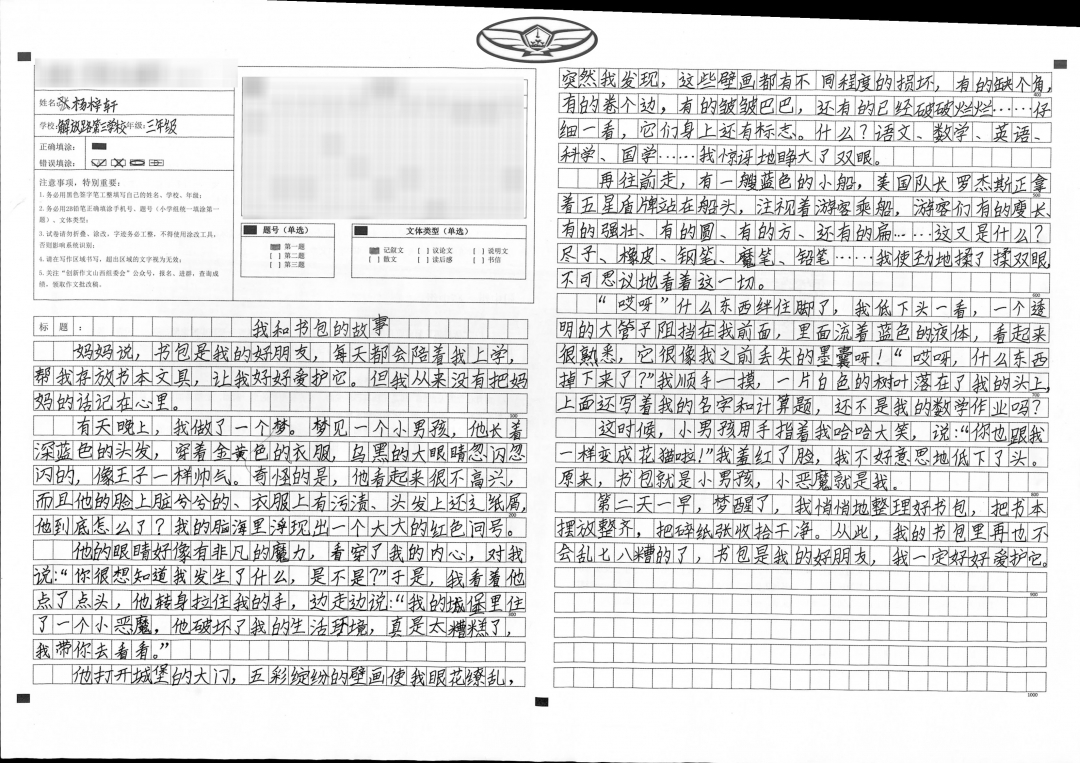 姓名：杨梓轩
学校：解放路第三学校年级：三年级
正确填涂：
错误填涂：
注意事项，特别重要：
1. 务必用黑色签字笔工整填写自己的姓名、学校、年级；
2. 务必用2B铅笔正确填涂手机号、题号（小学组统一填涂第一
题）、文体类型；
3. 试卷请勿折叠、涂改，字迹务必工整，不得使用涂改工具，
否则影响系统识别；
4. 请在写作区域书写，超出区域的文字视为无效；
5. 关注“创新作文山西组委会”公众号，报名、进群、查询成
绩，领取作文批改稿。
题号（单选）
第一题
[ ] 第二题
[ ] 第三题
文体类型（单选）
记叙文 [ ] 议论文 [ ] 说明文
[ ] 散文 [ ] 读后感 [ ] 书信
标 题： 我和书包的故事
妈妈说，书包是我的好朋友，每天都会陪着我上学，
帮我存放书本文具，让我好好爱护它。但我从来没有把妈
妈的话记在心里。
100
有天晚上，我做了一个梦。梦见一个小男孩，他长着
深蓝色的头发，穿着金黄色的衣服，乌黑的大眼睛忽闪忽
闪的，像王子一样帅气。奇怪的是，他看起来很不高兴，
而且他的脸上脏兮兮的、衣服上有污渍、头发上还沾纸屑，
200
他到底怎么了？我的脑海里浮现出一个大大的红色问号。
他的眼睛好像有非凡的魔力，看穿了我的内心，对我
说：“你很想知道我发生了什么，是不是？”于是，我看着他
点了点头，他转身拉住我的手，边走边说：“我的城堡里住
300
了一个小恶魔，他破坏了我的生活环境，真是太糟糕了，
我带你去看看。”
他打开城堡的大门，五彩缤纷的壁画使我眼花缭乱，
突然我发现，这些壁画都有不同程度的损坏，有的缺个角，
400
有的卷个边，有的皱皱巴巴，还有的已经破破烂烂……仔
细一看，它们身上还有标志。什么？语文、数学、英语、
科学、国学……我惊讶地睁大了双眼。
再往前走，有一艘蓝色的小船，美国队长罗杰斯正拿
500
着五星盾牌站在船头，注视着游客乘船，游客们有的瘦长、
有的强壮、有的圆、有的方、还有的扁……这又是什么？
尺子、橡皮、钢笔、魔笔、铅笔……我使劲地揉了揉双眼，
不可思议地看着这一切。
600
“哎呀”什么东西绊住脚了，我低下头一看，一个透
明的大管子阻挡在我前面，里面流着蓝色的液体，看起来
很熟悉，它很像我之前丢失的墨囊呀！“哎呀，什么东西
掉下来了？”我顺手一摸，一片白色的树叶落在了我的头上，
700
上面还写着我的名字和计算题，还不是我的数学作业吗？
这时候，小男孩用手指着我哈哈大笑，说：“你也跟我
一样变成花猫啦！”我羞红了脸，我不好意思地低下了头。
原来，书包就是小男孩，小恶魔就是我。
800
第二天一早，梦醒了，我悄悄地整理好书包，把书本
摆放整齐，把碎纸张收拾干净。从此，我的书包里再也不
会乱七八糟的了，书包是我的好朋友，我一定好好爱护它。
900
1000